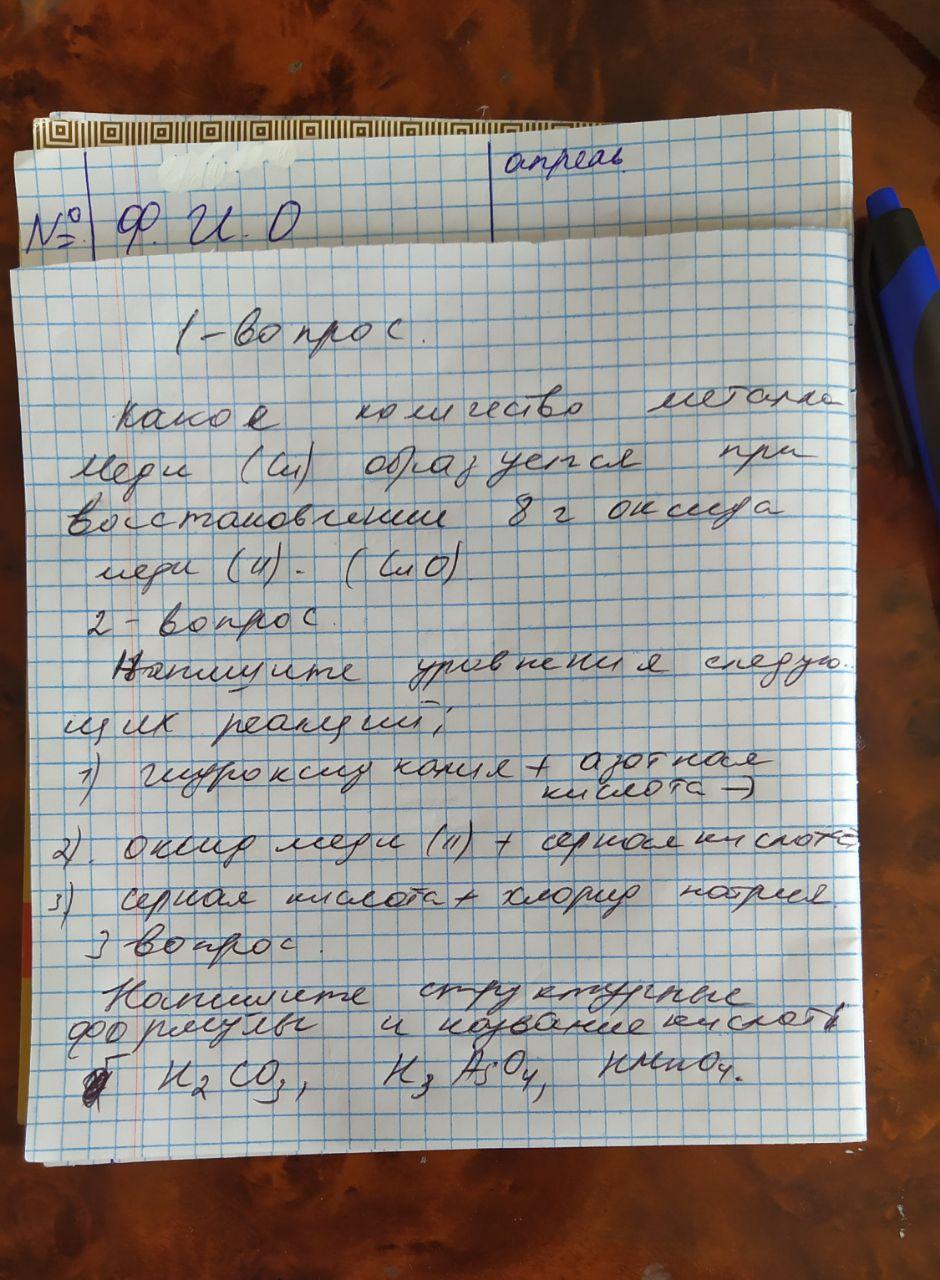 апрель
№ Ф. И. О
1-вопрос.
Какое количество металла
меди (Cu) образуется при
восстановлении 8 г оксида
меди (II) - (CuO)
2-вопрос.
Напишите уравнения следую-
щих реакций;
1) гидроксид калия + азотная
кислота →
2). оксид меди (II) + серная кислота
3) серная кислота + хлорид натрия.
3 вопрос.
Напишите структурные
формулы и название кислот
H2CO3, H3AsO4, HMnO4.